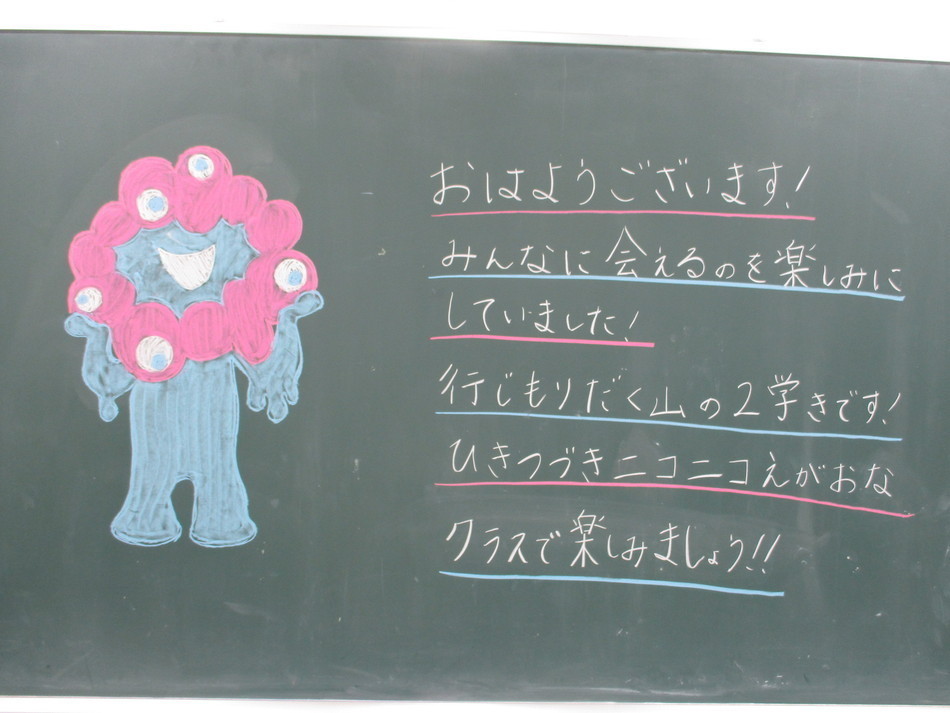 おはようございます!
みんなに会えるのを楽しみに
していました!
行じもりだく山の2学きです!
ひきつづきニコニコえがおな
クラスで楽しみましょう!!